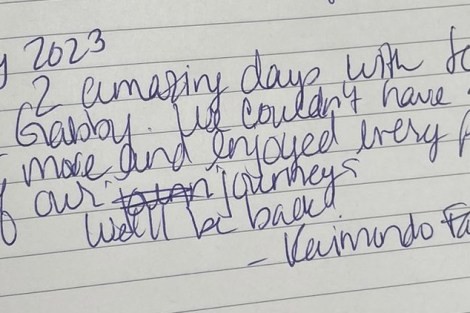 y 2023
2 amazing days with
Gabby. We couldn't have
more and enjoyed every
of our journeys
We'll be back!
- Raimundo Fa